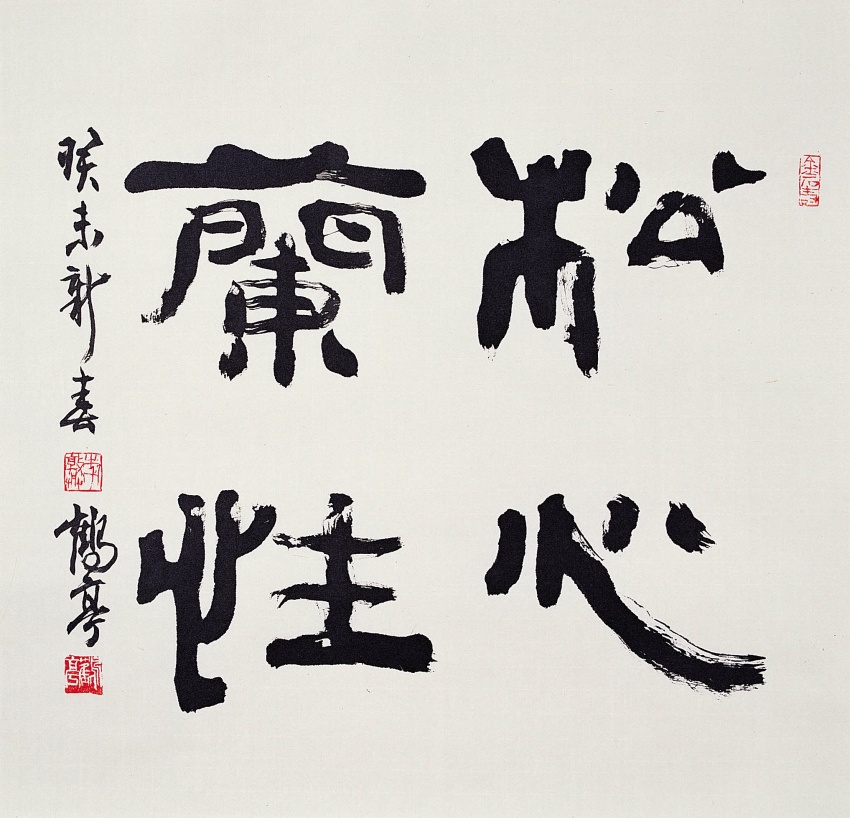 松心
蘭性
癸未新春
鶴亭